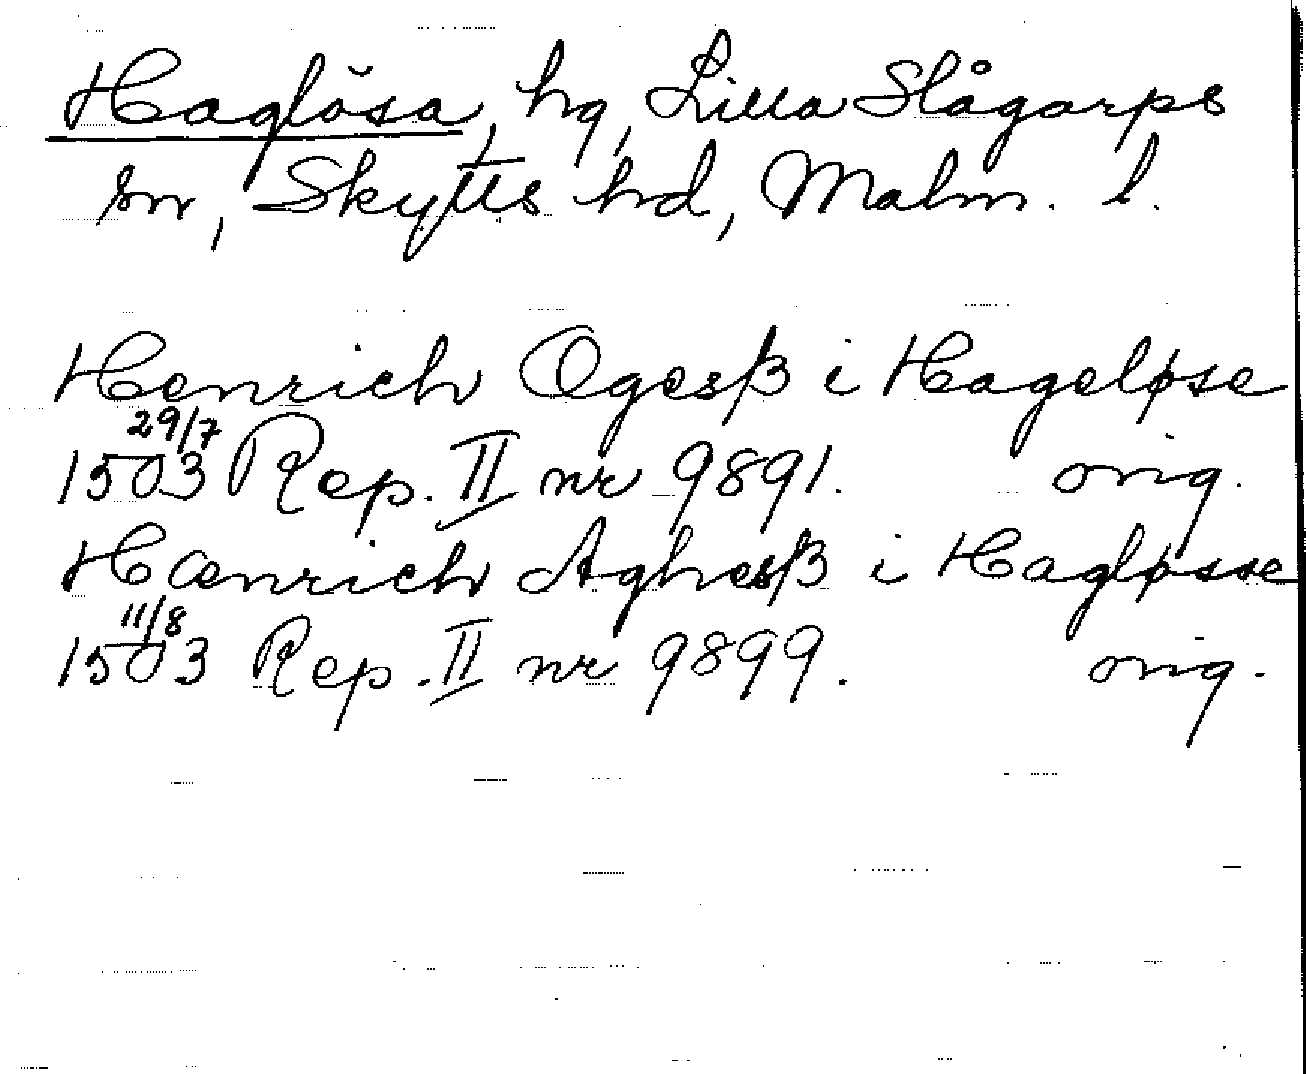 Haglösa, hg, Lilla Slågarps
sn, Skytts hd, Malm. l.
Henrich Ogesß i Hageløse
29/7
1503 Rep. II nr 9891. orig.
Hænrich Aghesß i Hagløsse
11/8
1503 Rep. II nr 9899. orig.